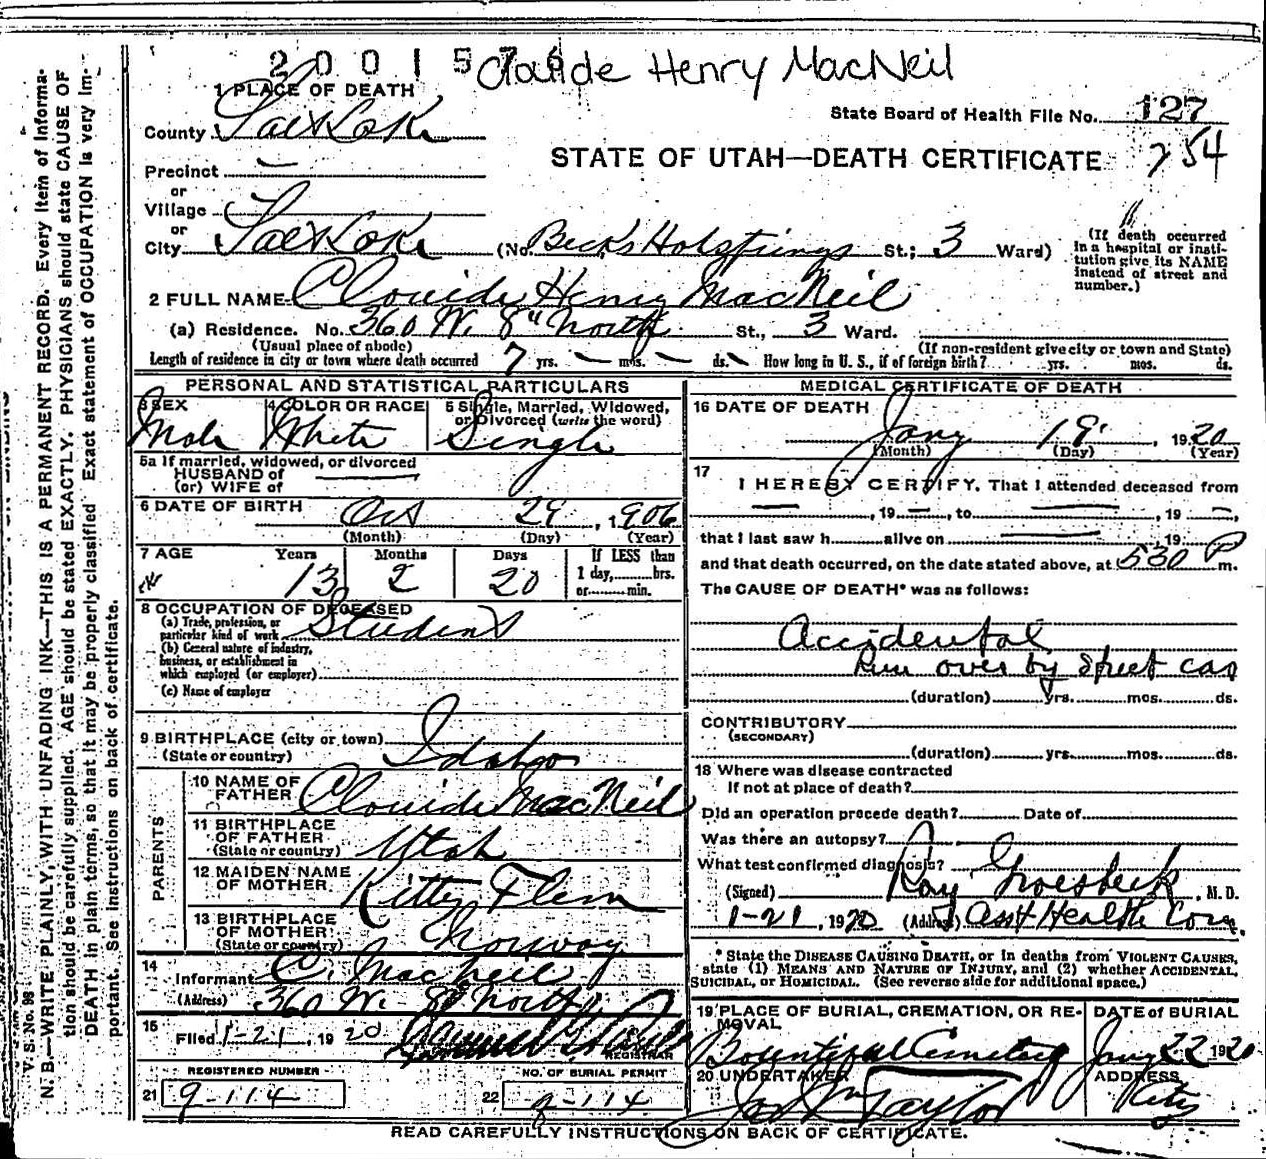 2001576
Claude Henry MacNeil
1 PLACE OF DEATH
State Board of Health File No. 127
County Salt Lake
254
STATE OF UTAH—DEATH CERTIFICATE
Precinct —
or
Village
or
City Salt Lake (No. Becks Hotsprings St.; 3 Ward)
(If death occurred in a hospital or institution give its NAME instead of street and number.)
2 FULL NAME Clauide Henry MacNeil
(a) Residence. No. 360 W. 8" North St., 3 Ward.
(Usual place of abode) (If non-resident give city or town and State)
Length of residence in city or town where death occurred 7 yrs. — mos. — ds. — How long in U. S., if of foreign birth? yrs. mos. ds.
PERSONAL AND STATISTICAL PARTICULARS
3 SEX 4 COLOR OR RACE 5 Single, Married, Widowed, or Divorced (write the word)
Male White Single
5a If married, widowed, or divorced
HUSBAND of
(or) WIFE of
6 DATE OF BIRTH Oct 29, 1906
(Month) (Day) (Year)
7 AGE Years Months Days If LESS than
1 day, hrs.
13 2 20 or min.
8 OCCUPATION OF DECEASED
(a) Trade, profession, or
particular kind of work Student
(b) General nature of industry,
business, or establishment in
which employed (or employer)
(c) Name of employer
9 BIRTHPLACE (city or town)
(State or country) Idaho
PARENTS
10 NAME OF
FATHER Clauide MacNeil
11 BIRTHPLACE
OF FATHER
(State or country) Utah
12 MAIDEN NAME
OF MOTHER Kitty Flem
13 BIRTHPLACE
OF MOTHER
(State or country) Norway
14
Informant C. MacNeil
(Address) 360 W. 8" North
15
Filed 1-21, 1920
REGISTRAR
REGISTERED NUMBER NO. OF BURIAL PERMIT
21 9-114 22 9-114
MEDICAL CERTIFICATE OF DEATH
16 DATE OF DEATH
Jany 19, 1920
(Month) (Day) (Year)
17
I HEREBY CERTIFY, That I attended deceased from
—, 19—, to —, 19—,
that I last saw h alive on —, 19
and that death occurred, on the date stated above, at 530 P m.
The CAUSE OF DEATH* was as follows:
Accidental
Run over by street car
(duration) yrs. mos. ds.
CONTRIBUTORY
(SECONDARY)
(duration) yrs. mos. ds.
18 Where was disease contracted
If not at place of death?
Did an operation precede death? Date of
Was there an autopsy?
What test confirmed diagnosis?
(Signed) Ray Groesbeck, M. D.
1-21, 1920 (Address) Asst Health Com.
* State the DISEASE CAUSING DEATH, or in deaths from VIOLENT CAUSES,
state (1) MEANS AND NATURE OF INJURY, and (2) whether ACCIDENTAL,
SUICIDAL, or HOMICIDAL. (See reverse side for additional space.)
19 PLACE OF BURIAL, CREMATION, OR REMOVAL DATE of BURIAL
Bountiful Cemetery Jany 22 1920
20 UNDERTAKER ADDRESS
Taylor City
READ CAREFULLY INSTRUCTIONS ON BACK OF CERTIFICATE.
V. S. No. 98
N. B.—WRITE PLAINLY, WITH UNFADING INK—THIS IS A PERMANENT RECORD. Every item of Informa-
tion should be carefully supplied. AGE should be stated EXACTLY. PHYSICIANS should state CAUSE OF
DEATH in plain terms, so that it may be properly classified. Exact statement of OCCUPATION is very im-
portant. See instructions on back of certificate.